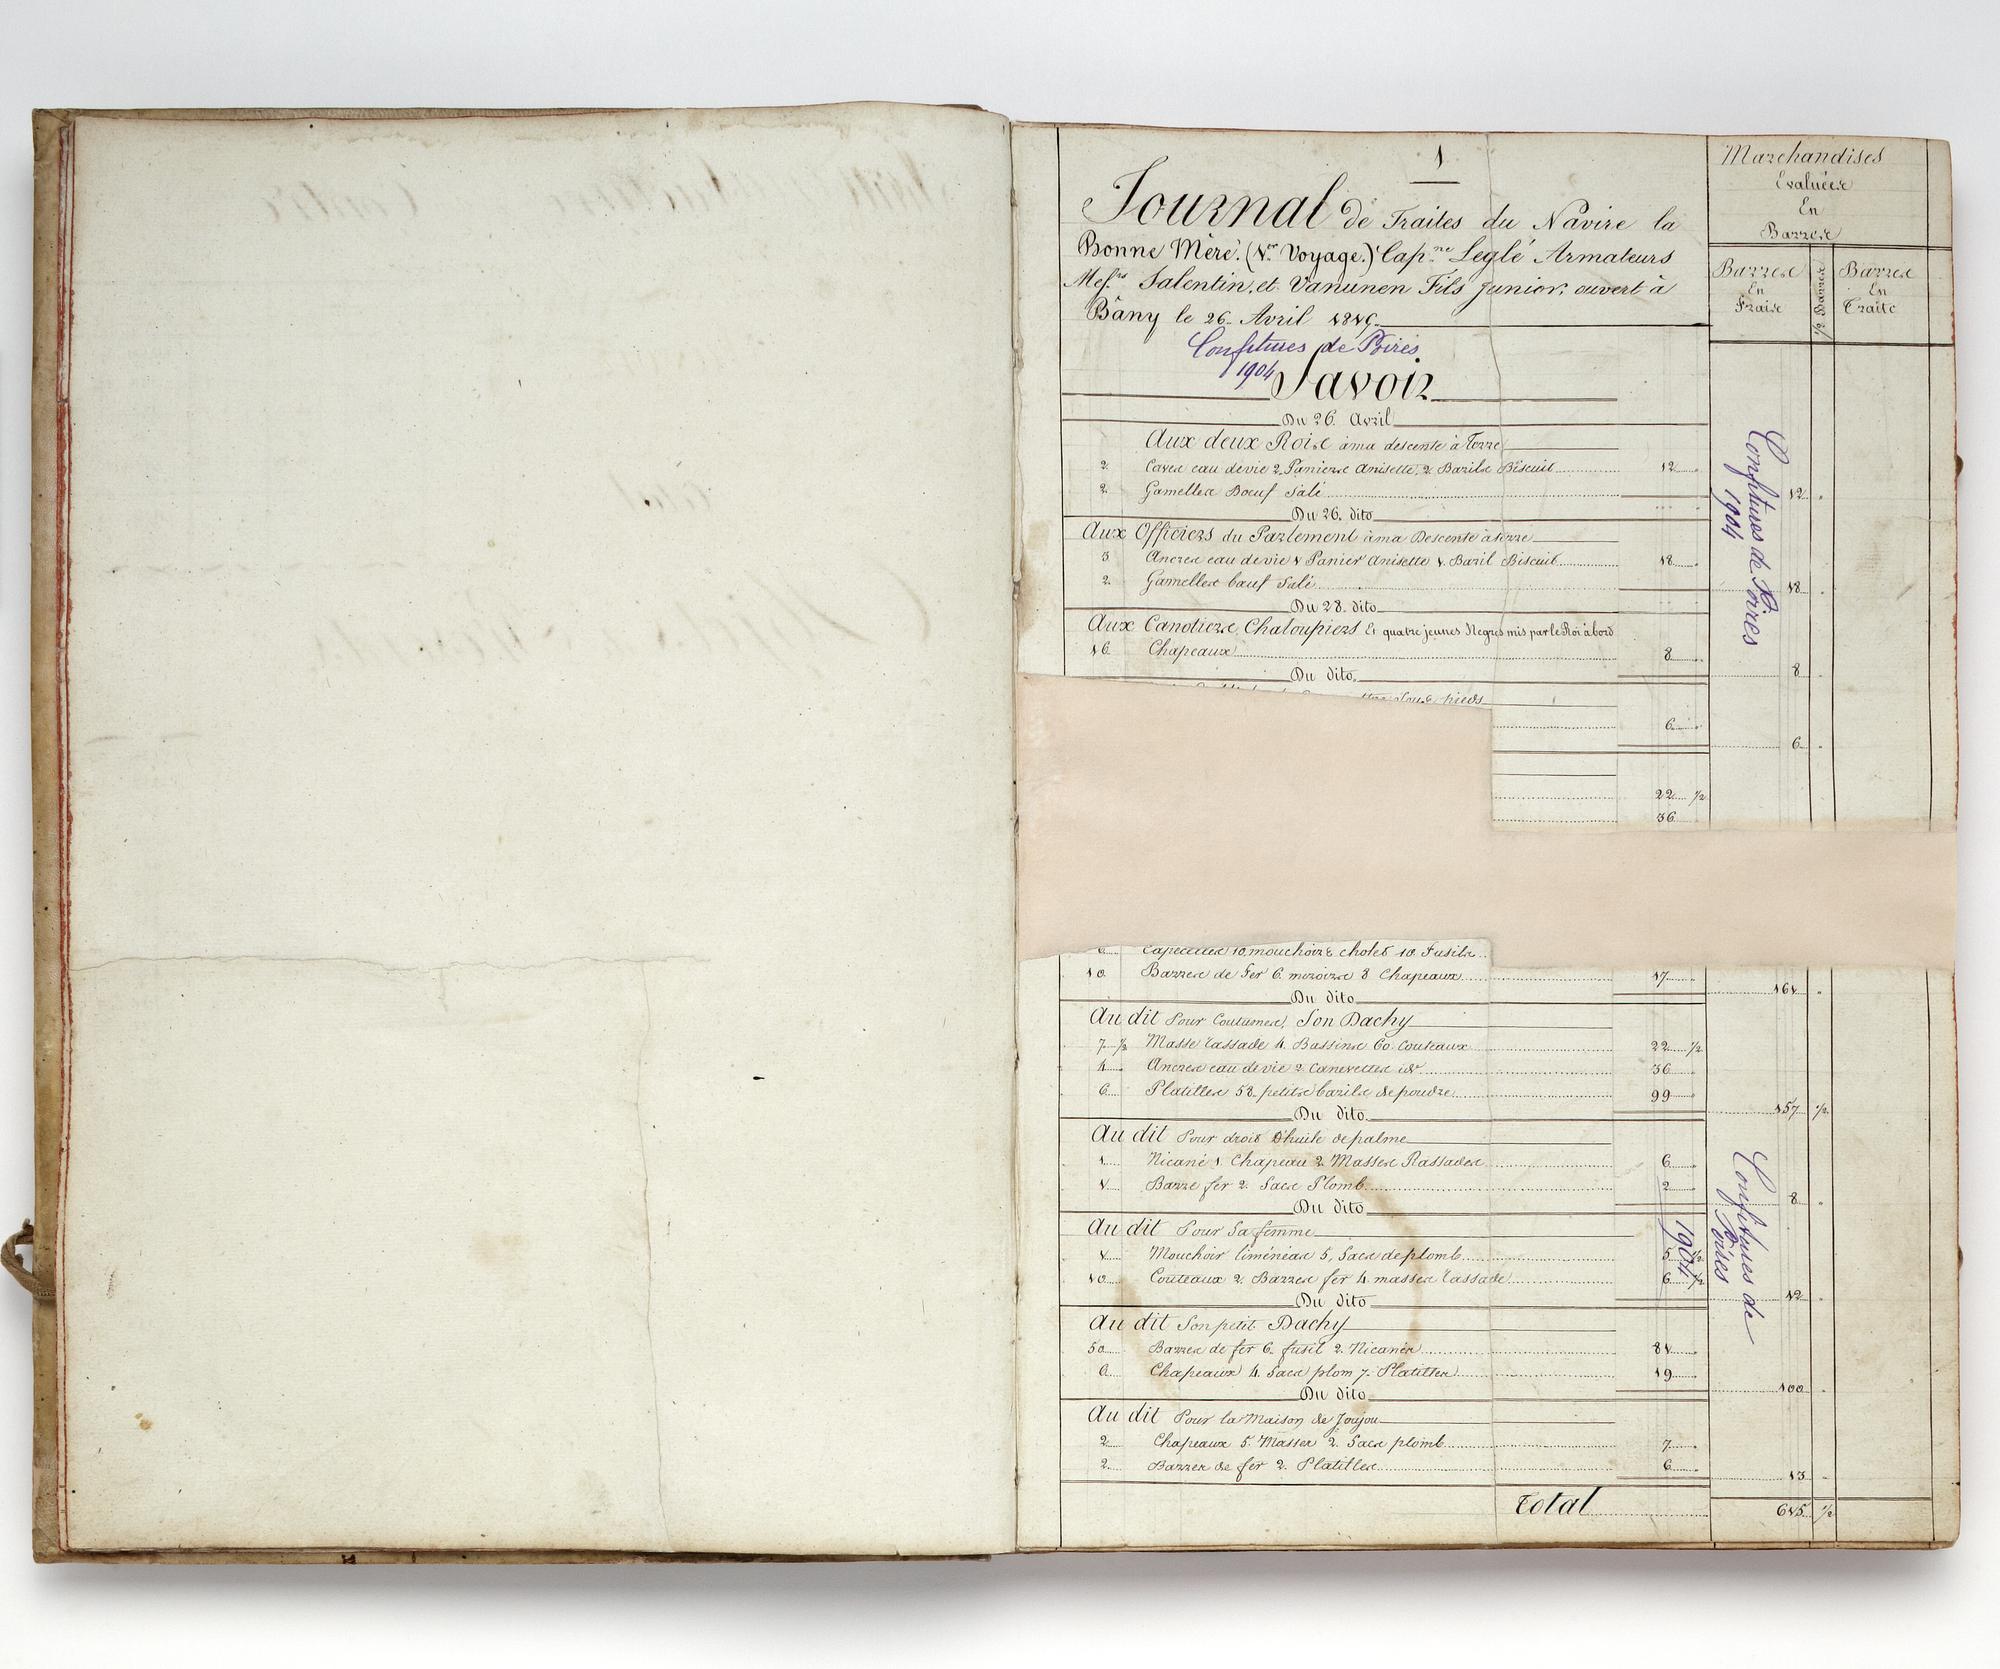 1
Journal de Traites du Navire la
Bonne Mère. (1er Voyage.) Capne Leglé Armateurs
Messrs Salentin, et Vanunen Fils Junior, ouvert à
Bány le 26 Avril 1815
Confitures de Poires
1904
Savoir
Marchandises
Evaluées
En
Barres
Barres
En
Fraise
1/2 Barres
Barres
En
Traite
Du 26. Avril
Aux deux Rois à ma descente à Terre
2. Caves eau de vie 2 Paniers Anisette, 2 Barils Biscuit 12
2. Gamelles Boeuf Salé 12
Du 26. dito
Aux Officiers du Parlement à ma Descente à terre
3 Ancres eau de vie 1 Panier Anisette 1. Baril Biscuit 18
2. Gamelles bœuf Salé 18
Du 28. dito
Aux Canotiers, Chaloupiers Et quatre jeunes Negres mis par le Roi à bord
16 Chapeaux 8
8
Du dito
pieds
6
6
22 1/2
36
Confitures de Poires
1904
6 Capecelles 10 mouchoirs cholet 10 Fusils
10 Barres de fer 6. miroirs 8 Chapeaux 17
161
Du dito
Au dit Pour Coutumes, Son Dachy
7 1/2 Masse rassade 4. Bassins 60 Couteaux 22 1/2
4 Ancres eau de vie 2. Canevettes id 36
6 Platilles 58 petits barils de poudre 99
157 1/2
Du dito
Au dit Pour droit d'huile de palme
1 Nicané 1 Chapeau 2 Masses Rassades 6
1 Barre fer 2. Sacs Plomb 2
8
Du dito
Au dit Pour Sa femme
1 Mouchoir liménéas 5, Sacs de plomb 5 1/2
10 Couteaux 2. Barres fer 4 masses rassade 6 1/2
12
Confitures de
Poires
1904
Du dito
Au dit Son petit Dachy
50 Barres de fer 6. fusil 2. Nicanés 81
6 Chapeaux 4. Sacs plom 7. Platilles 19
100
Du dito
Au dit Pour la Maison de Joujou
2 Chapeaux 5. Masses 2. Sacs plomb 7
2 Barres de fer 2. Platilles 6
13
Total 615 1/2